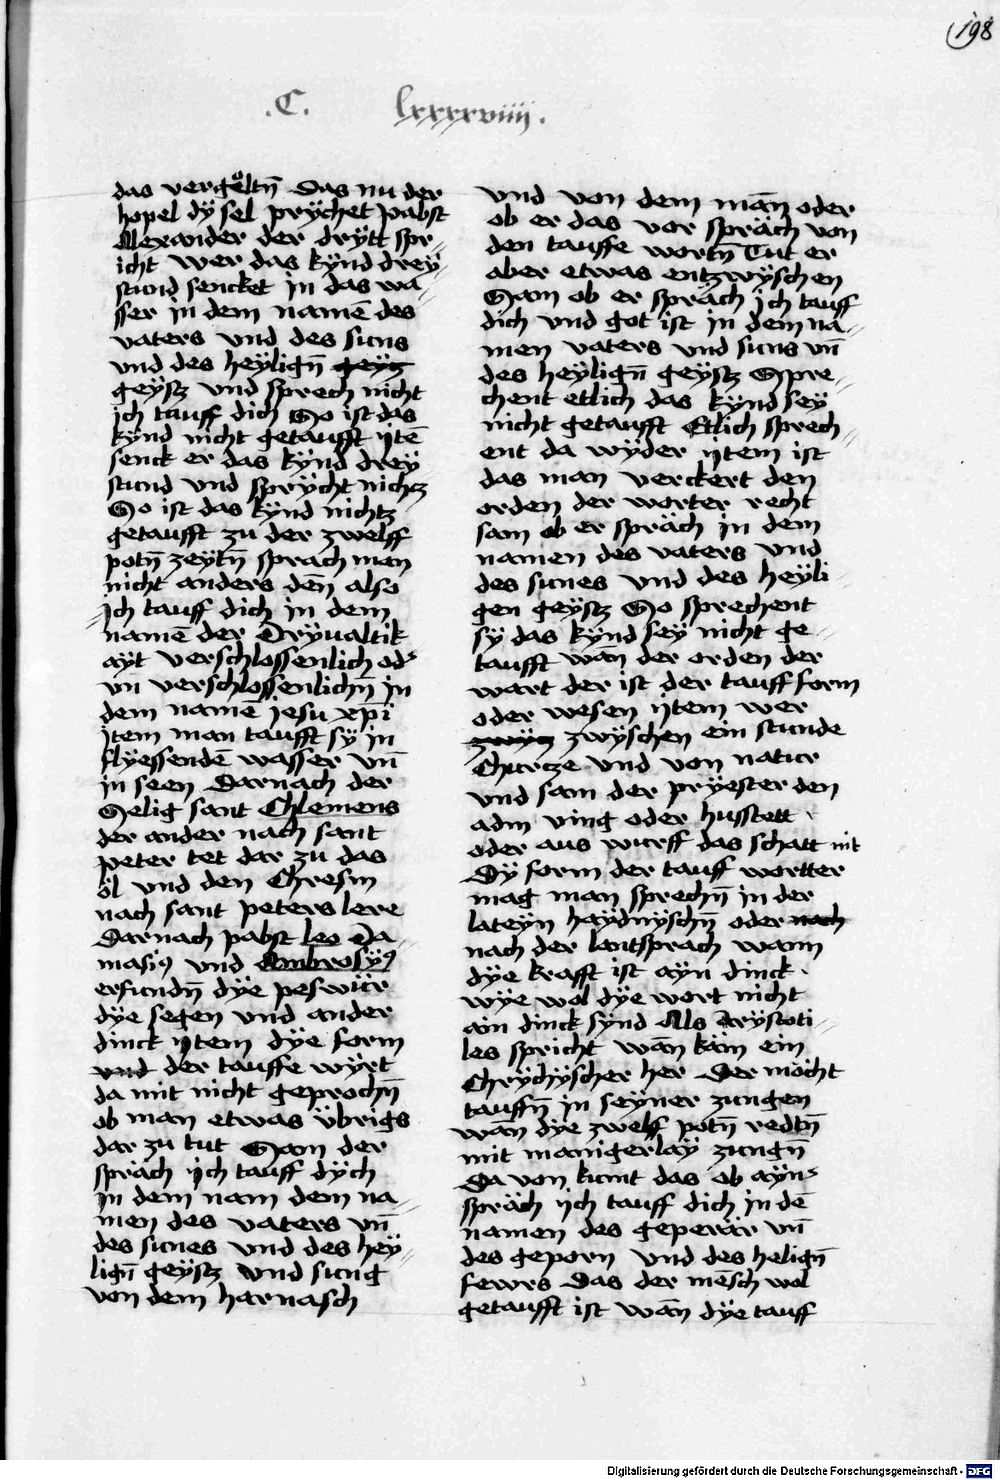 198
.C. lxxxxviiii.
das vergöltn̄ Das nu der
hopel dÿ sel prÿchet pabst
Alexander der drÿtt spr=
icht wer das kÿnd dreÿ=
stund sencket in das wa=
sser in dem namē des
vaters vnd des suns
vnd des heÿlign̄ geÿtz
geÿstz vnd sprech nicht
ich tauff dich So ist das
kÿnd nicht getaufft ÿtē
senck er das kÿnd dreÿ
stund vnd sprÿcht nichtz
So ist das kÿnd nichtz
getaufft zu der zwelff
potn̄ zeÿtn̄ sprach man
nicht anders den̄ also
Ich tauff dich in dem
namē der Drÿualtik=
aÿt verschlossenlich od'
vn verschlossenlichn̄ in
dem namē jesu xp̄i
jtem man taufft sÿ in
flÿessendē wasser vn̄
in seen Darnach der
Selig sant Chlemens
der ander nach sant
peter tet dar zu das
öl vnd den Chresm
nach sant peters lere
Darnach pabst leo Da=
masi⁹ vnd Ambrosÿ⁹
erfundn̄ dÿe peswür
dÿe segen vnd ander
dinck ÿtem dÿe form
vnd der tauffe wÿrt
da mit nicht geprochn̄
ob man etwas übrigs
dar zu tut Sam der
spräch ÿch tauff dÿch
in dem nam dem na=
men des vaters vn̄
des sunes vnd des heÿ=
lign̄ geÿstz Vnd sung
von dem harnasch
vnd von dem man̄ oder
ob er das vor spräch von
den tauffe wortn̄ Tut er
aber etwas entzwÿschen
Sam ob er spräch ich tauff
dich vnd got ist in dem na=
men vaters vnd suns vn̄
des heÿlign̄ geÿstz Spre=
chent etlich das kÿnd seÿ
nicht getaufft Etlich sprech=
ent da wÿder ÿtem ist
das man verckert den
orden der worter recht
sam ob er spräch in dem
namen des vaters vnd
des sunes vnd des heÿli=
gen geÿstz So sprechent
sÿ das kÿnd seÿ nicht ge=
taufft wan̄ der orden der
wart der ist der tauff form
oder wesen ÿtem wer
zwÿtz zwÿschen ein stunde
Churcze vnd von natur
vnd sam der prÿester den
adm ving oder husstett
oder aus wurff das schatt nit
Dÿ form der tauff wortter
mag man sprechn̄ in der
lateÿn haÿdnÿschn̄ oder nach
nach der lantsprach wann
dÿe krafft ist aÿn dinck
wÿe wol dÿe wort nicht
ain dinck sÿnd Als Arÿstoti=
les spricht wan̄ käm ein
Chrÿchÿscher her Der möcht
tauffn̄ in seÿner zungen
wan̄ dÿe zwelff potn̄ redtn̄
mit manigerlaÿ zungn̄
Da von kumt das ob aÿn'
spräch ÿch tauff dich in dē
namen des geperär vn̄
des geporn vnd des helign̄
fewrs Das der mēsch wol
getaufft ist wan̄ dÿe tauff
Digitalisierung gefördert durch die Deutsche Forschungsgemeinschaft - DFG